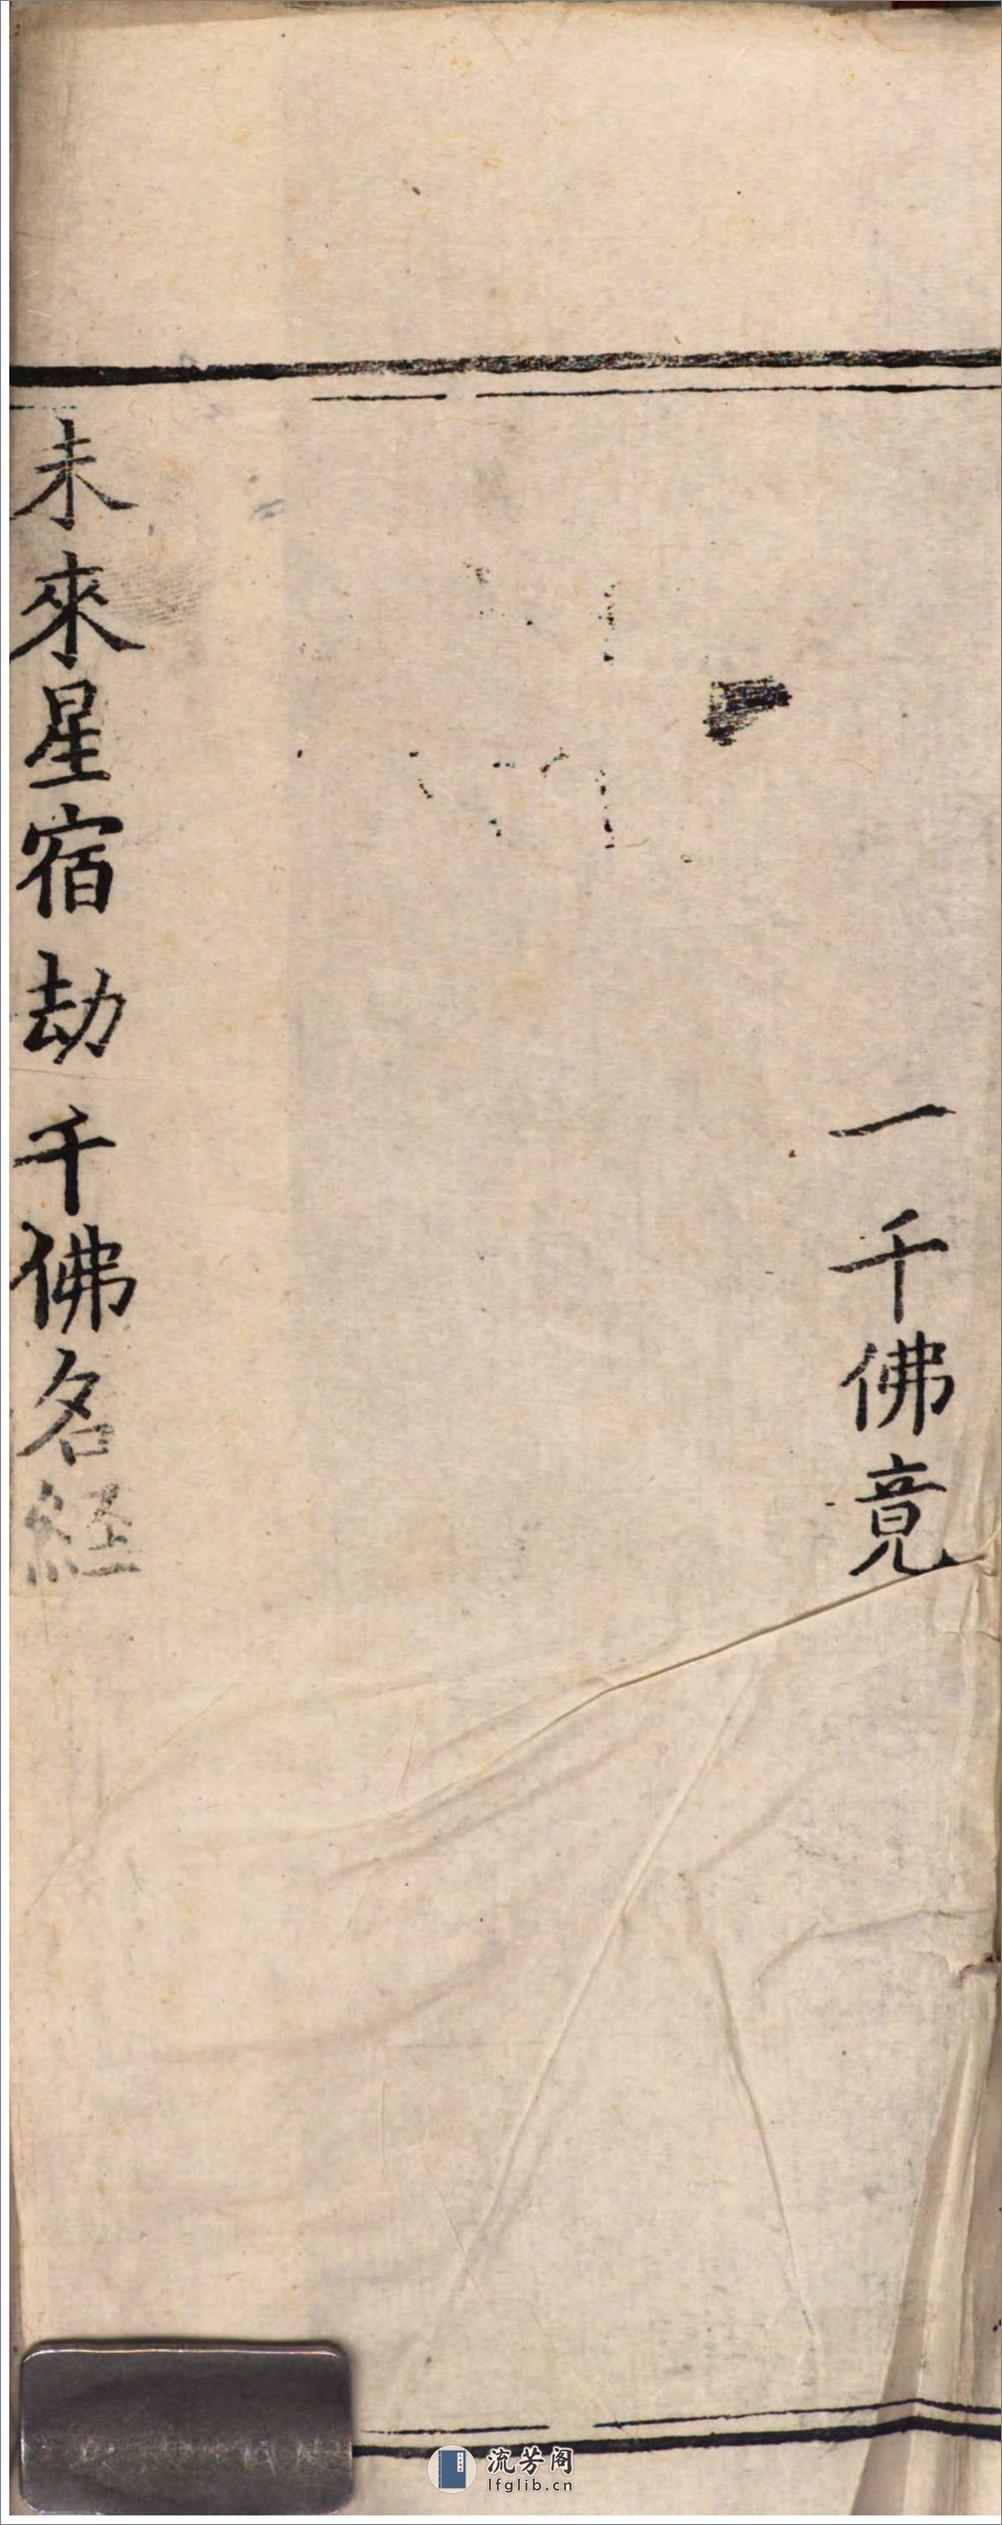 一千佛竟
未來星宿劫千佛名経
流芳阁
lfglib.cn